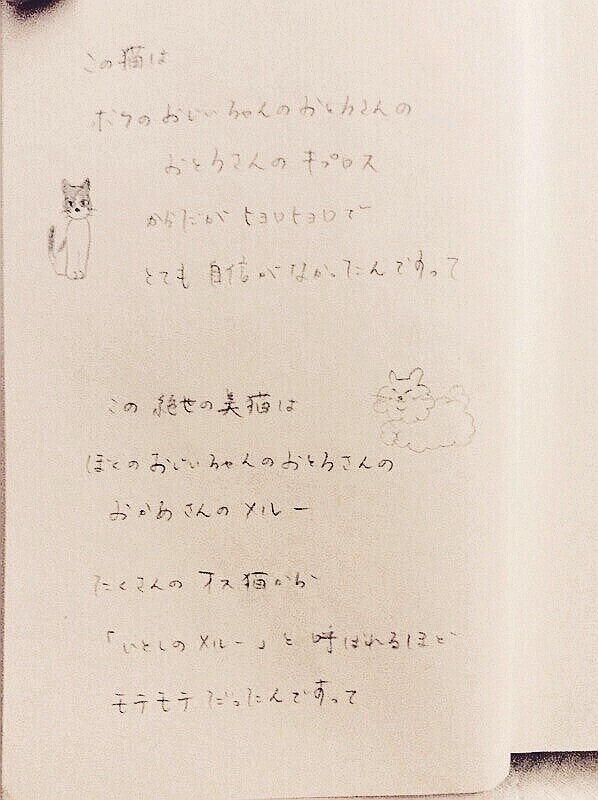 この猫は
ボクのおじいちゃんのおとうさんの
おとうさんのキプロス
からだがヒョロヒョロで
とても自信がなかったんですって
この絶世の美猫は
ぼくのおじいちゃんのおとうさんの
おかあさんのメルー
たくさんのオス猫から
「いとしのメルー」と呼ばれるほど
モテモテだったんですって